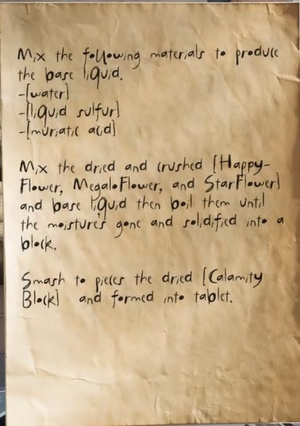 Mix the following materials to produce
the base liquid.
-[water]
-[liquid sulfur]
-[muriatic acid]
Mix the dried and crushed [Happy-
Flower, MegaloFlower, and StarFlower]
and base liquid then boil them until
the moistures gone and solidified into a
block.
Smash to pieces the dried [Calamity
Block] and formed into tablet.